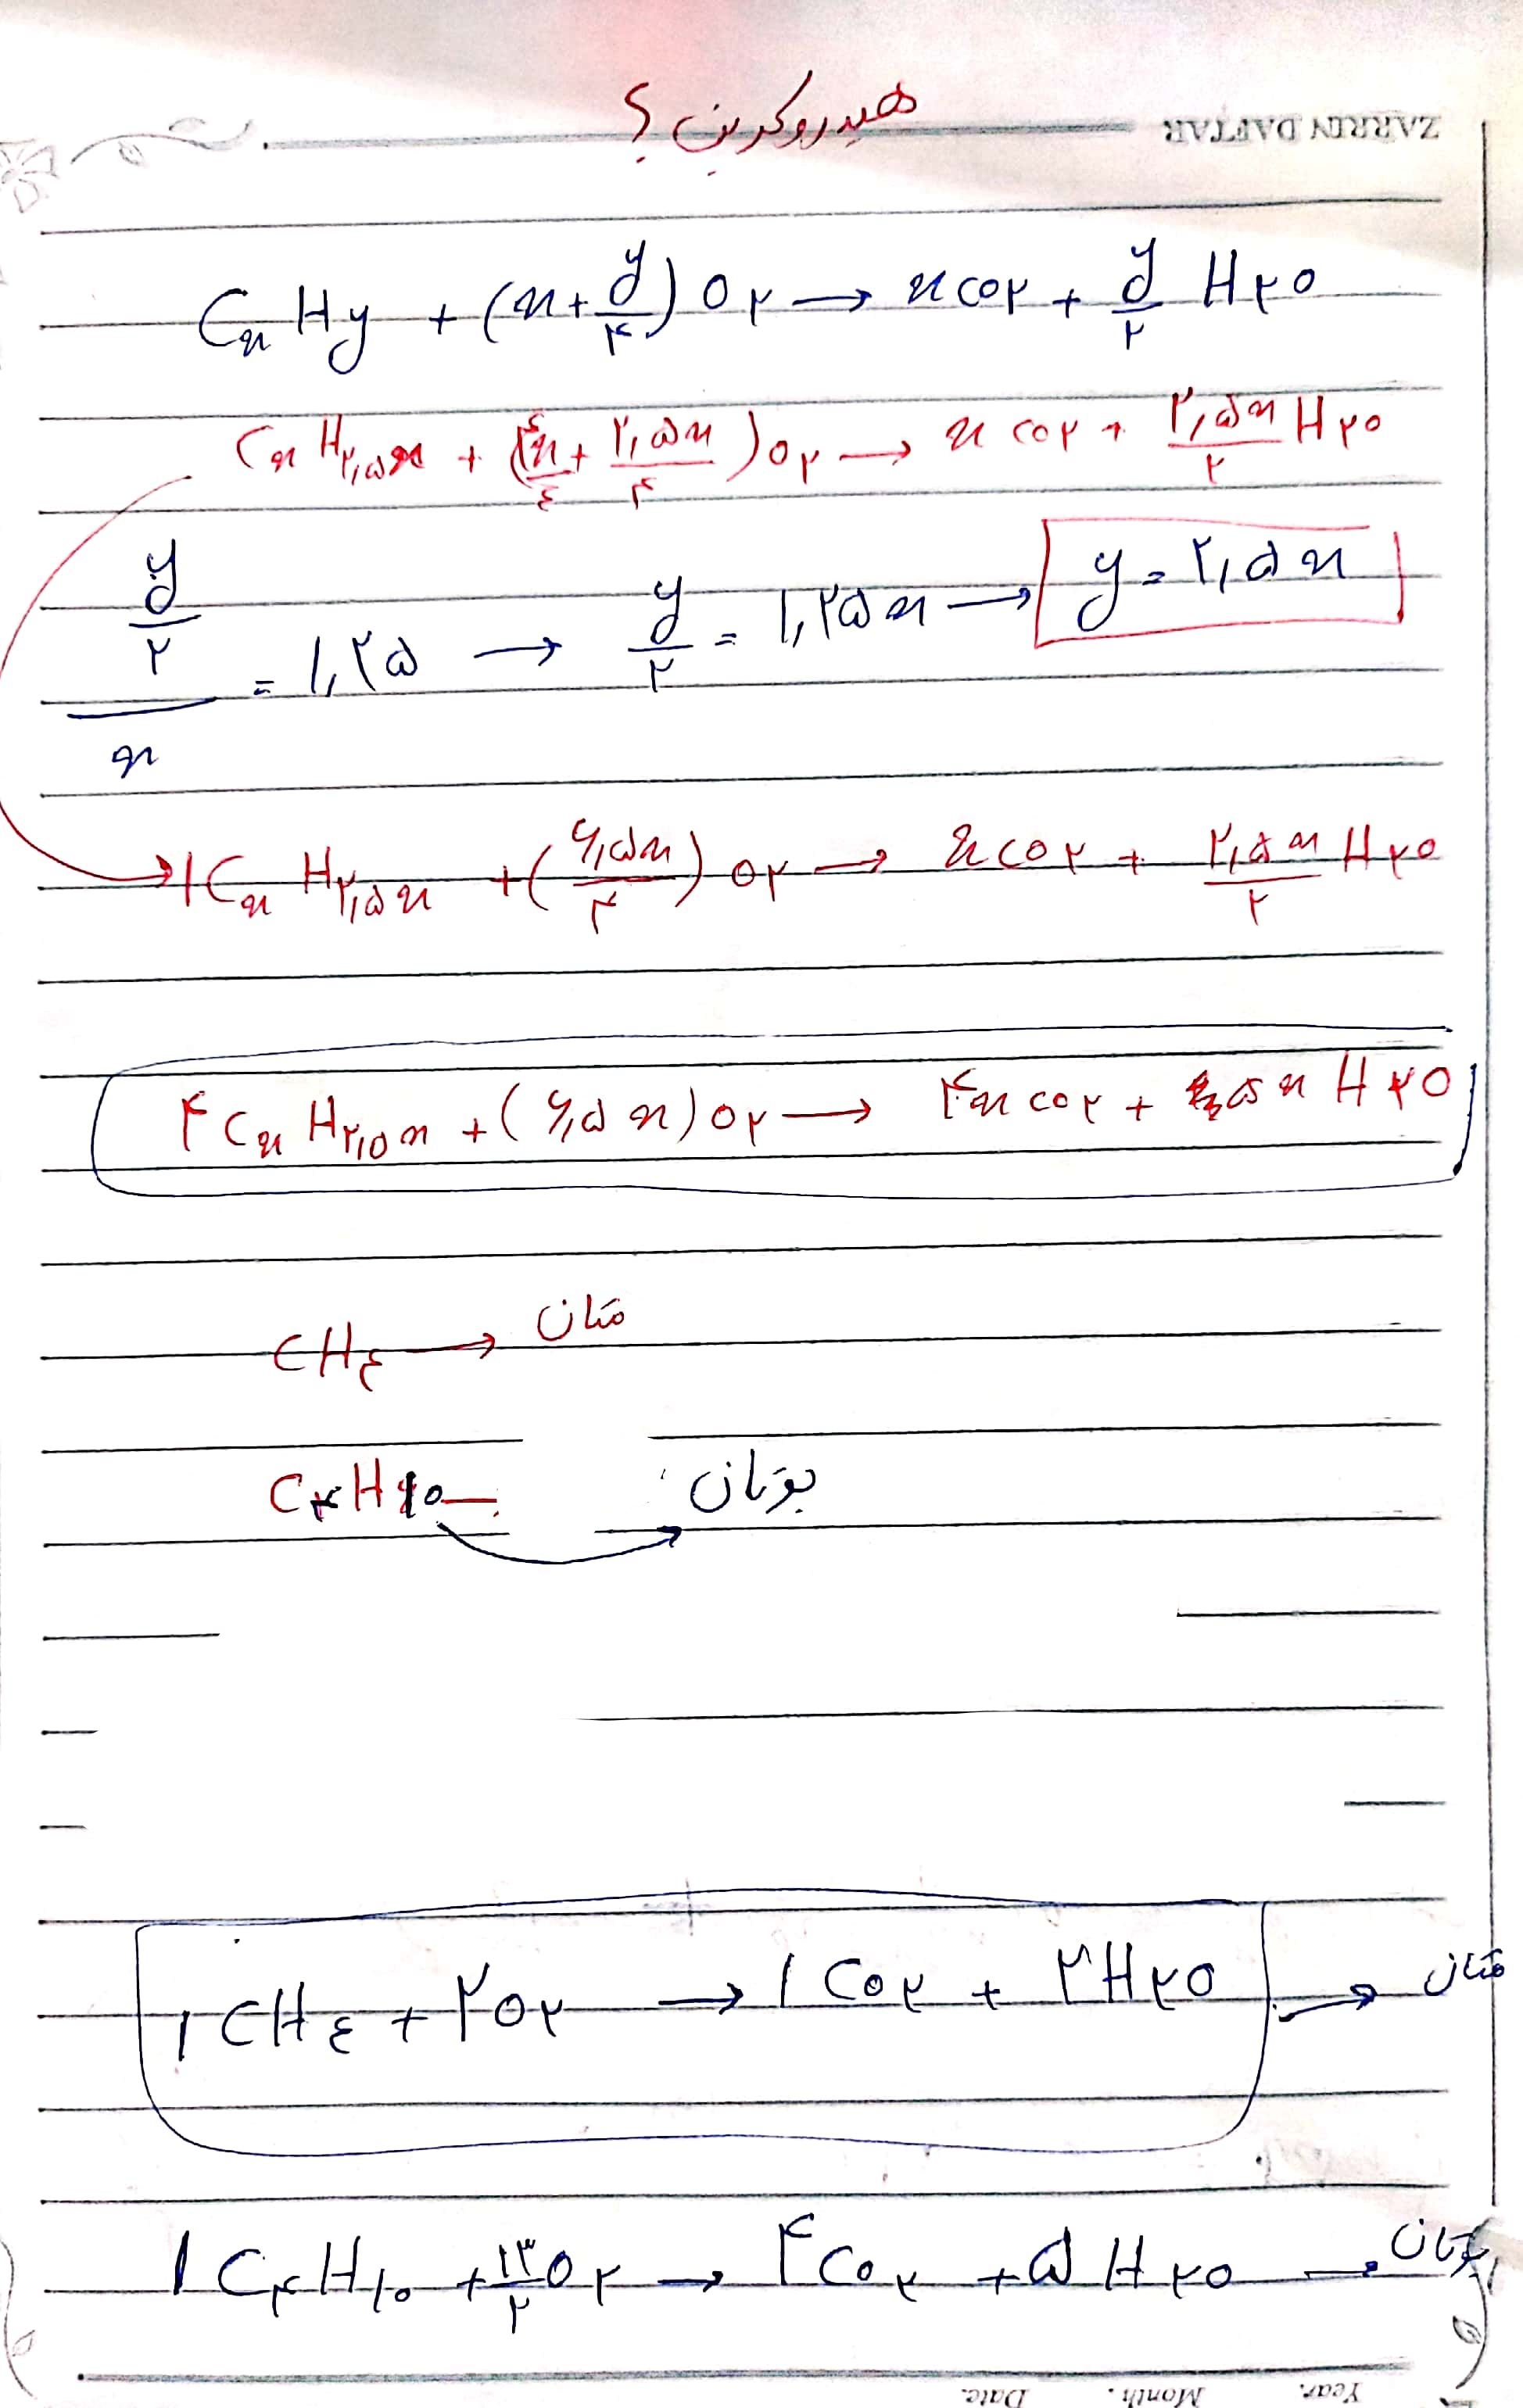 ZARRIN DAFTAR
هیدروکربن ؟
CxHy + (x + y/۴) O۲ → x CO۲ + y/۲ H۲O
CxH۲٫۵x + (۴x/٤ + ۲٫۵x/۴) O۲ → x CO۲ + ۲٫۵x/۲ H۲O
(y/۲)/x = ۱٫۲۵ → y/۲ = ۱٫۲۵x → y = ۲٫۵x
→ ۱CxH۲٫۵x + (۶٫۵x/۴) O۲ → x CO۲ + ۲٫۵x/۲ H۲O
۴CxH۲٫۵x + (۶٫۵x) O۲ → ۴x CO۲ + ۵x H۲O
CH٤ → متان
C۴H۱۰ → بوتان
۱CH٤ + ۲O۲ → ۱CO۲ + ۲H۲O → متان
۱C۴H۱۰ + ۱۳/۲ O۲ → ۴CO۲ + ۵H۲O → بوتان
Year. Month. Date.